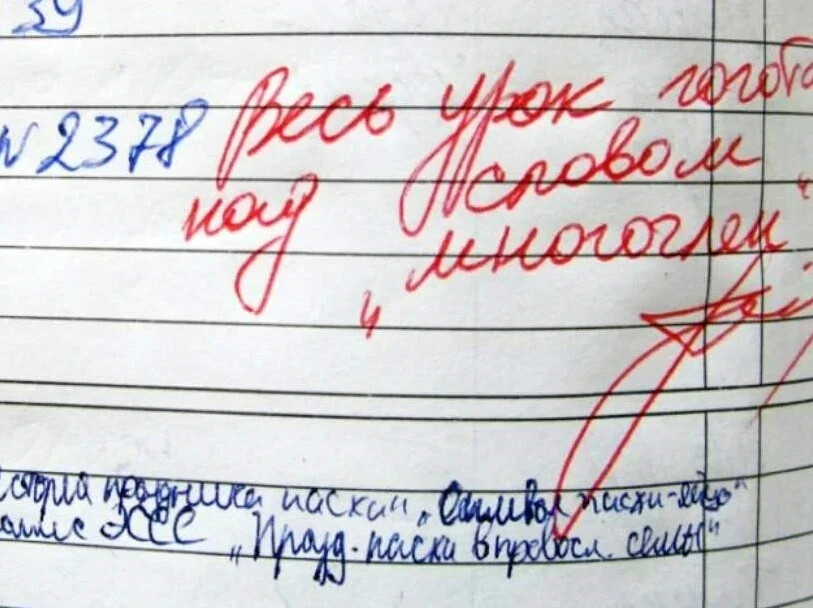 39
№2378 Весь урок гогота
над словом
„многочлен“
стория праздника пасхи „Символ пасхи-яйцо“
„Празд. пасхи в правосл. семьы“